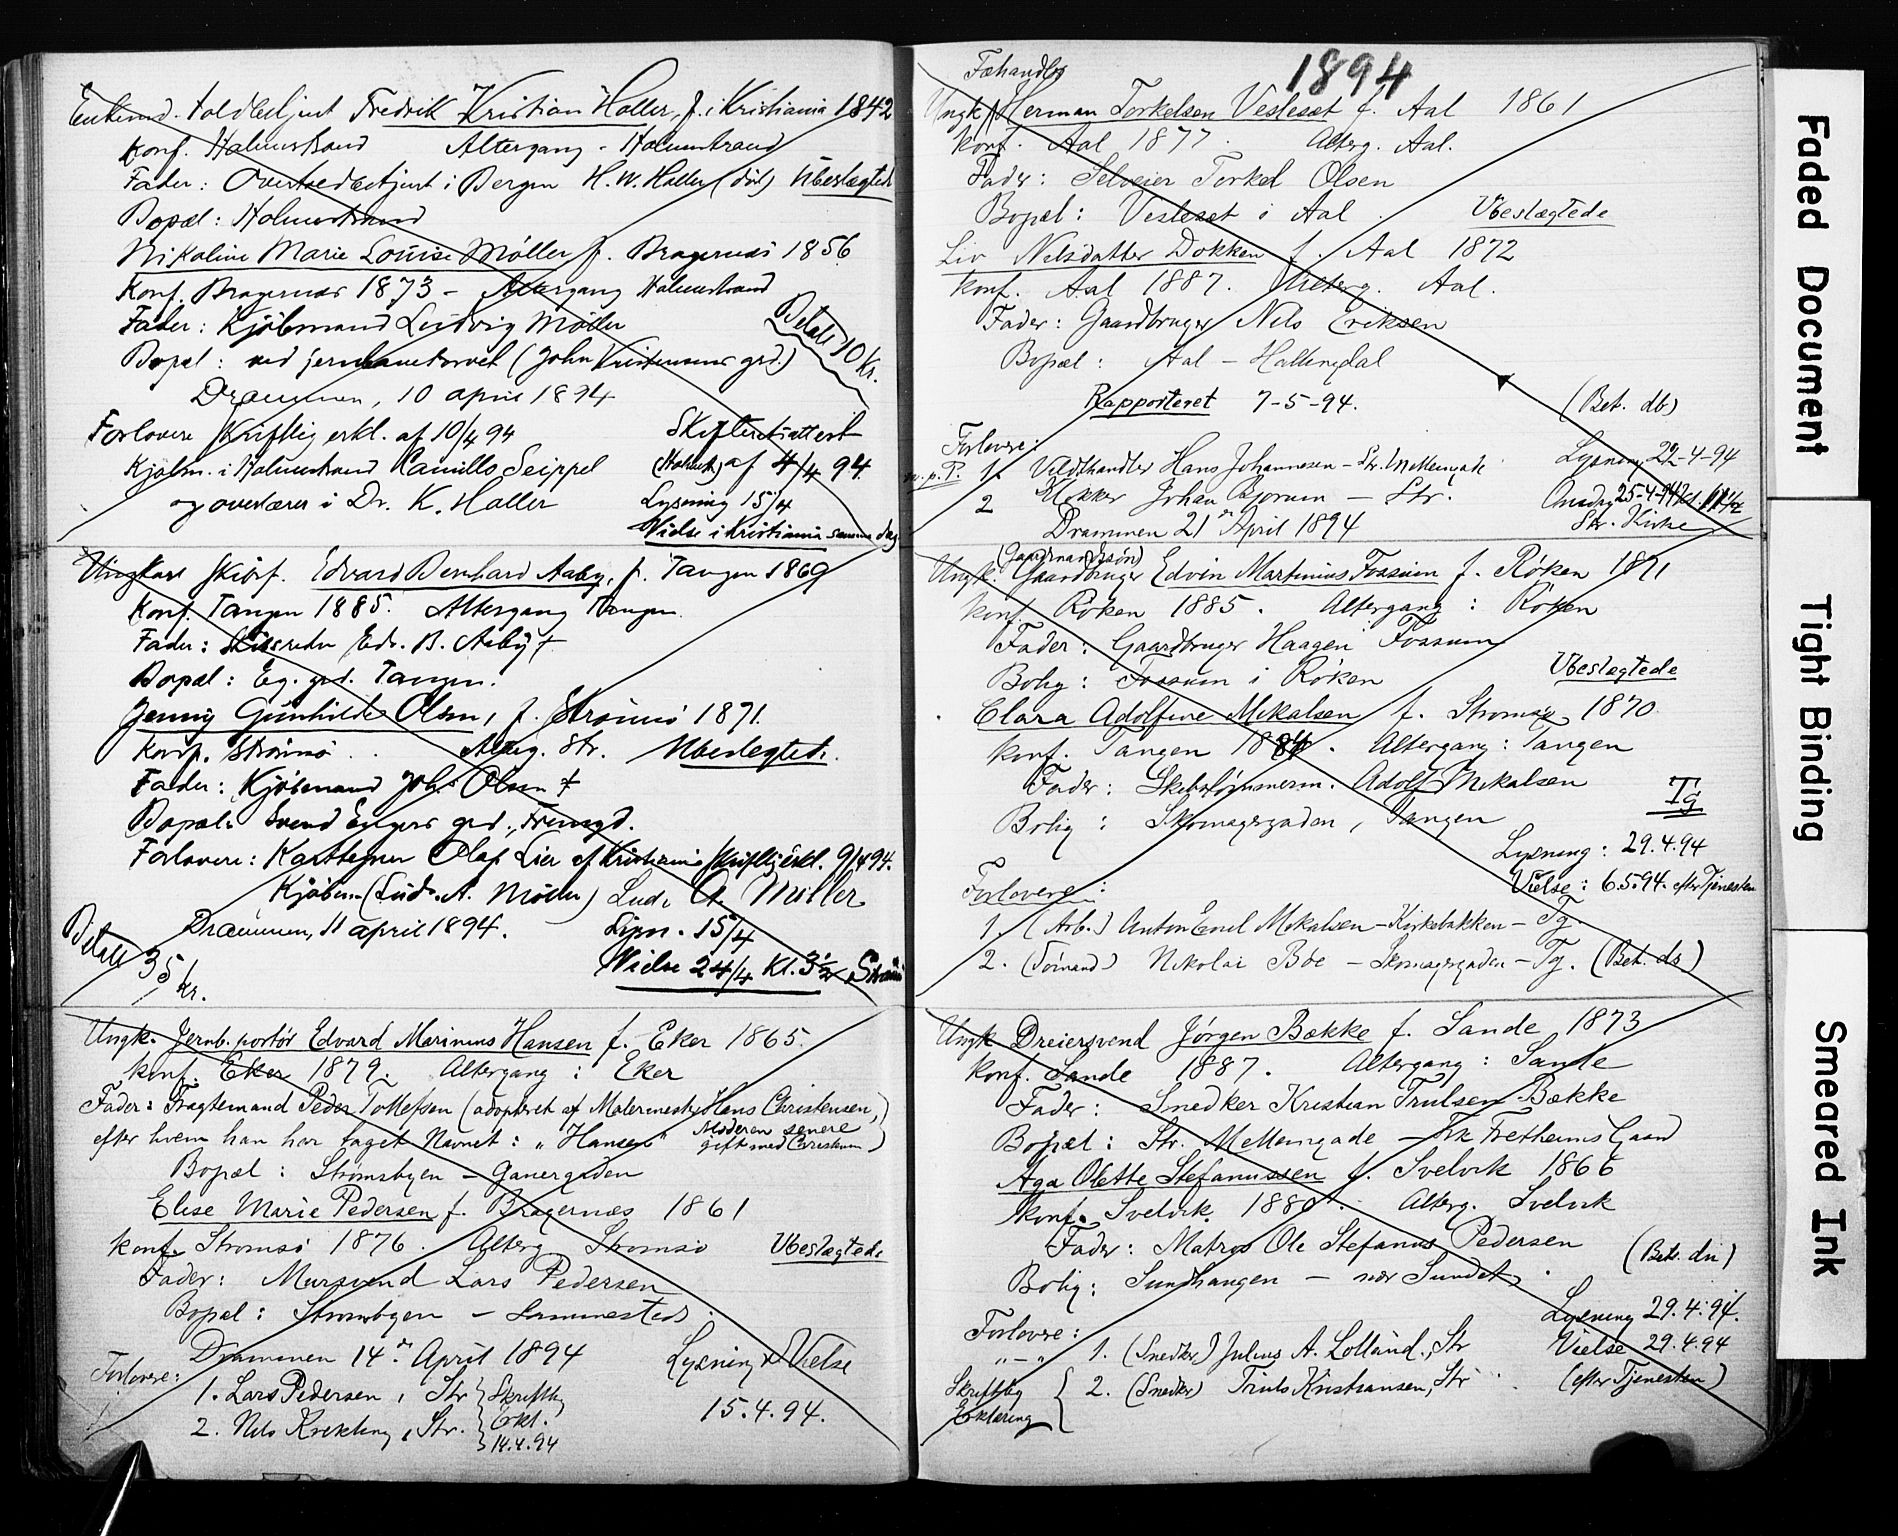 Enkemd. Toldbetjent Fredrik Kristian Holler, f. i Kristiania 1842
Konf. Holmestrand Altergang - Holmestrand
Fader: Overtoldbetjent i Bergen H. W. Holler (død) Ubeslægtede
Bopæl: Holmestrand
Nikoline Marie Louise Møller f. Bragernæs 1856
Konf. Bragernæs 1873 - Altergang Holmestrand
Fader: Kjøbmand Ludvig Møller
Betalt 10 kr.
Bopæl: ved jernbanetorvet (John Kristensens grd.)
Drammen, 10 april 1894
Forlovere skriftlig erkl. af 10/4 94 Skifteretsattest
Kjøbm. i Holmestrand Camillo Seippel (Holmestr) af 4/4 94.
og overlærer i Dr. K. Holler Lysning 15/4
Vielse i Kristiania samme dag
Ungkarl skibsf. Edvard Bernhard Aaby, f. Tangen 1869
Konf. Tangen 1885. Altergang Tangen.
Fader: Skibsreder Edv. B. Aaby †
Bopæl: Eg. grd. Tangen.
Jenny Gunhilde Olsen, f. Strømsø 1871.
Konf. Strømsø. Alterg. Str. Ubeslegtede.
Fader: Kjøbmand Joh. Olsen †
Bopæl: Svend Engers grd.,
Forlovere: Karttegner Olaf Lier af Kristiania skriftlig erkl. 9/4 94.
Kjøbm. (Ludv. A. Møller) Ludv. A. Müller
Drammen, 11 april 1894. Lysn. 15/4
Betalt 35 kr.
Vielse 24/4 Kl. 3½ Strømsø
Ungk. Jernb. portør Edvard Marinius Hansen f. Eker 1865.
konf. Eker 1879. Altergang: Eker
Fader: Fragtemand Peder Tollefsen (adopteret af Malermester Hans Christensen,)
efter hvem han har taget Navnet: "Hansen" Moderen senere gift med Christensen)
Bopæl: Strømsbyen - Ganergaden
Elise Marie Pedersen f. Bragernæs 1861
konf. Strømsø 1876. Alterg. Strømsø Ubeslægtede
Fader: Mursvend Lars Pedersen
Bopæl: Strømsbyen - sammesteds.
Drammen 14de April 1894 Lysning & Vielse
Forlovere:
1. Lars Pedersen, Str. } Skriftlig
2. Nils Krekling, Str. } Erkl. 14.4.94
15.4.94.
1894
Fæhandler
Ungk. Herman Torkelsen Vesleset f. Aal 1861
konf. Aal 1877. Alterg. Aal.
Fader: Selveier Torkel Olsen
Bopæl: Vesleset i Aal. Ubeslægtede
Liv Nilsdatter Dokken f. Aal 1872
konf. Aal 1887. Alterg. Aal.
Fader: Gaardbruger Nils Eriksen
Bopæl: Aal - Hallingdal
Rapporteret 7-5-94. (Bet. db)
Forlovere:
m.p.P. 1. Vildthandler Hans Johannesen - Str. Mellemgade Lysning 22-4-94
2 Klokker Johan Bjornum - Str. Onsdag 25-4-94 kl. 11½
Drammen 21de April 1894 Str. Kirke
(Gaardmandssøn)
Ungk. Gaardbruger Edvin Martinius Fossum f. Røken 1871
konf. Røken 1885. Altergang: Røken
Fader: Gaardbruger Haagen Fossum
Bolig: Fossum i Røken Ubeslægtede
Clara Adolfine Mikalsen f. Strømsø 1870.
konf. Tangen 1884. Altergang: Tangen
Fader: Skibstømmerm. Adolf Mikalsen
Bolig: Skomagergaden, Tangen Tg
Lysning: 29.4.94
Forlovere: Vielse: 6.5.94. efter Tjenesten
1. (Arb.) Anton Emil Mikalsen - Kirkebakken - Tg.
2. (Sømand) Nikolai Boe - Skomagergaden - Tg. (Bet. ds)
Ungk Dreiersvend Jørgen Bække f. Sande 1873
konf. Sande 1887. Altergang: Sande
Fader: Snedker Kristian Trulsen Bække
Bopæl: Str. Mellemgade - Frk Fretheims Gaard
Aga Olette Stefanussen f. Svelvik 1866
konf. Svelvik. 1880. Alterg. Svelvik
Fader: Matros Ole Stefanus Pedersen (Bet. dn)
Bolig: Sundhaugen - nær Sundet.
Forlovere: Lysning 29.4.94.
„ - „ 1. (Snedker) Julius A. Lolland, Str Vielse 29.4.94
Skriftlig Erklæring { 2. (Snedker) Truls Kristiansen, Str. (efter Tjenesten)
Faded Document
Tight Binding
Smeared Ink